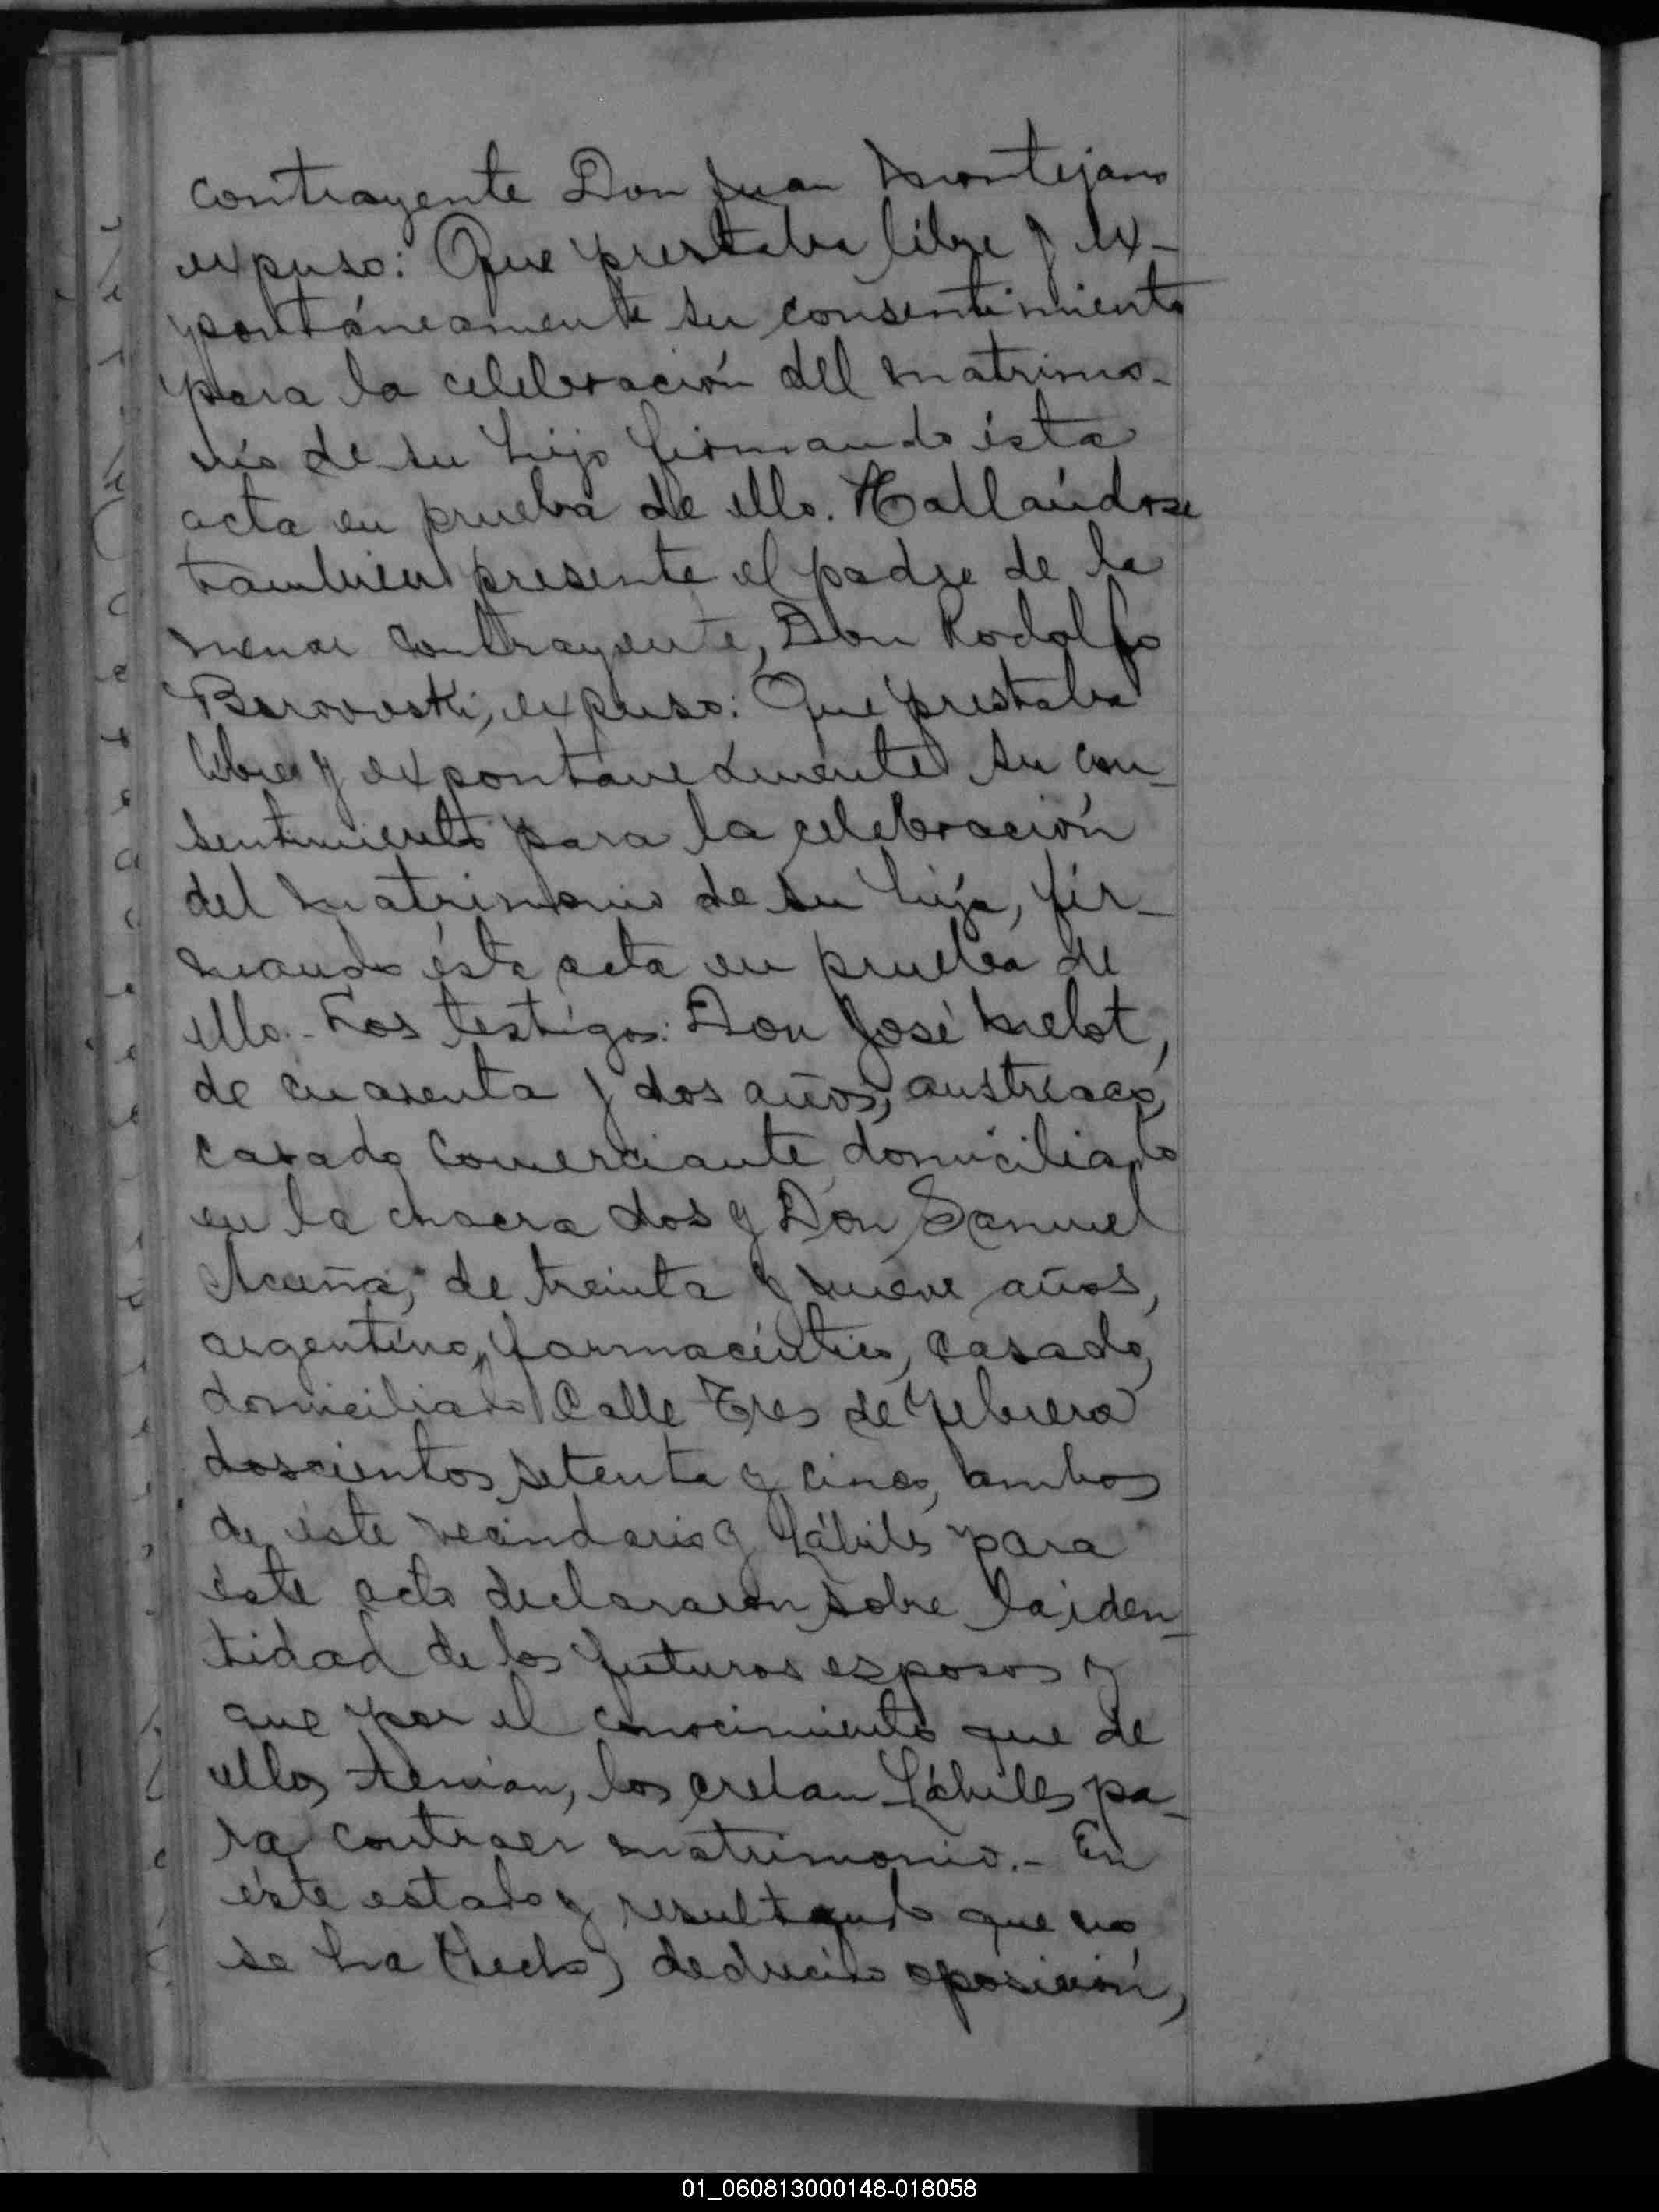 contrayente Don Juan Montejano
expuso: Que prestaba libre y ex-
pontáneamente su consentimiento
para la celebración del matrimo-
nio de su hijo firmando ésta
acta en prueba de ello. Hallándose
tambien presente el padre de la
menor contrayente, Don Rodolfo
expuso: Que prestaba
libre y expontaneamente su con-
sentimiento para la celebración
del matrimonio de su hija, fir-
mando ésta acta en prueba de
ello.- Los testigos: Don José Melot,
de cuarenta y dos años, austríaco,
casado comerciante domiciliado
en la chacra dos y Don Samuel
Acuña, de treinta y nueve años,
argentino, farmacéutico, casado,
domiciliado Calle Tres de Febrero
doscientos setenta y cinco, ambos
de éste vecindario y hábiles para
éste acto declararon sobre la iden-
tidad de los futuros esposos y
que por el conocimiento que de
ellos tenian, los creían hábiles pa-
ra contraer matrimonio.- En
éste estado y resultando que no
se ha (hecho) deducido oposición,
01_060813000148-018058